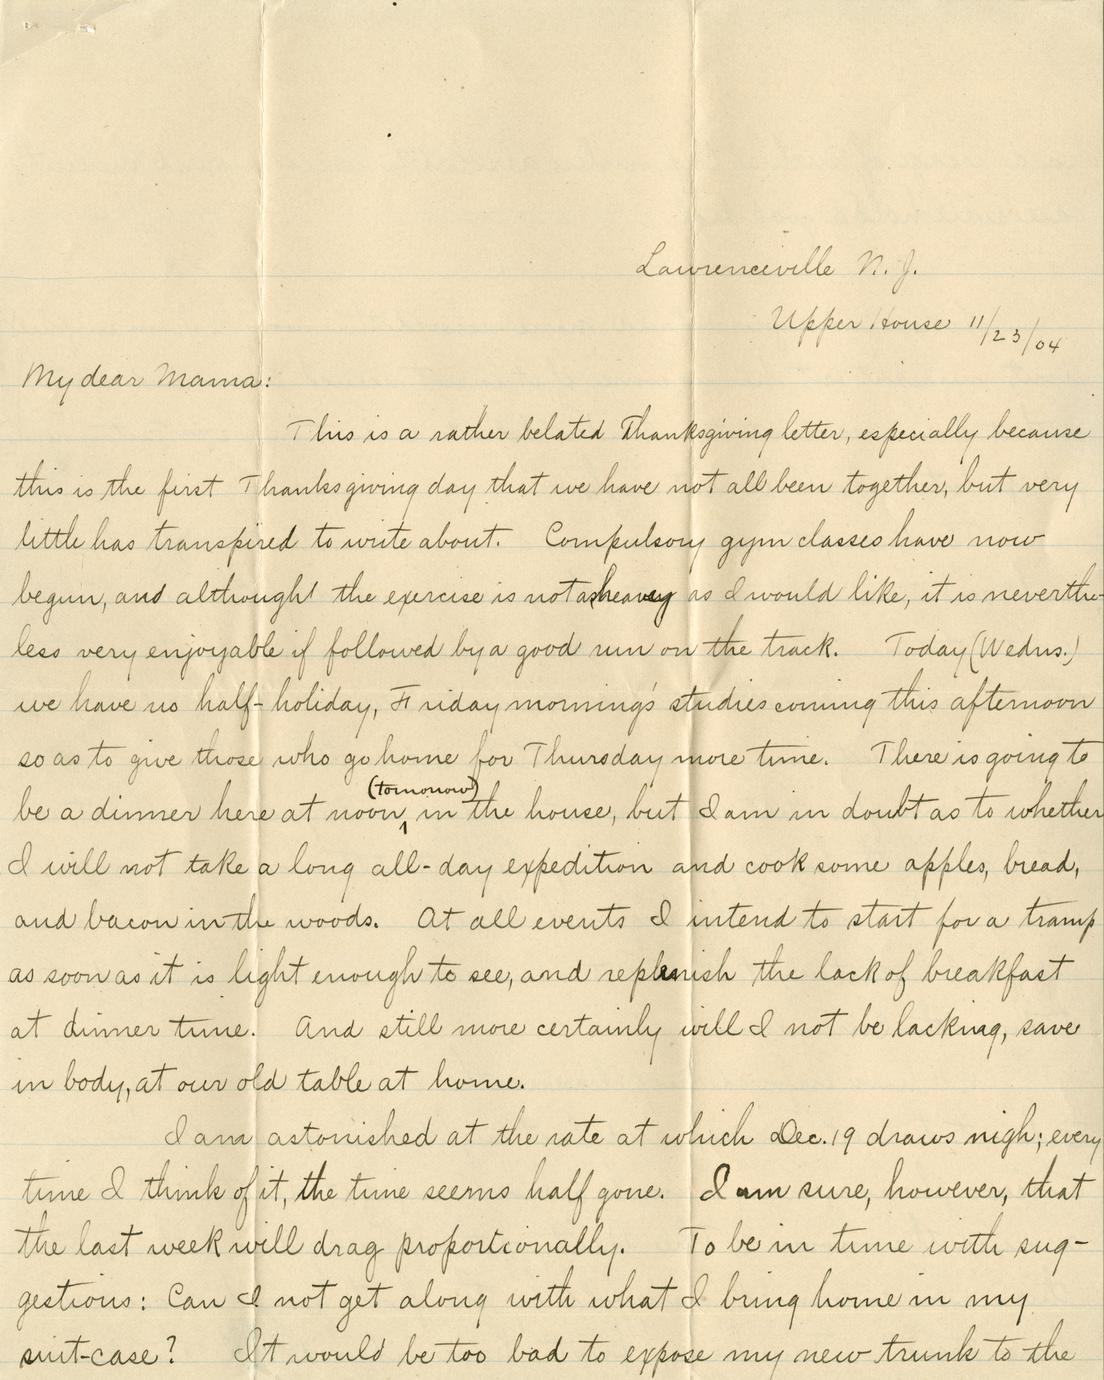 Lawrenceville N. J.
Upper House 11/23/04
My dear Mama:
This is a rather belated Thanksgiving letter, especially because
this is the first Thanksgiving day that we have not all been together, but very
little has transpired to write about. Compulsory gym classes have now
begun, and althought the exercise is not as heavy as I would like, it is neverthe-
less very enjoyable if followed by a good run on the track. Today (Wedns.)
we have no half-holiday, Friday morning's studies coming this afternoon
so as to give those who go home for Thursday more time. There is going to
(tomorrow)
be a dinner here at noon, in the house, but I am in doubt as to whether
I will not take a long all-day expedition and cook some apples, bread,
and bacon in the woods. At all events I intend to start for a tramp
as soon as it is light enough to see, and replenish the lack of breakfast
at dinner time. And still more certainly will I not be lacking, save
in body, at our old table at home.
I am astonished at the rate at which Dec. 19 draws nigh; every
time I think of it, the time seems half gone. I am sure, however, that
the last week will drag proportionally. To be in time with sug-
gestions: Can I not get along with what I bring home in my
suit-case? It would be too bad to expose my new trunk to the